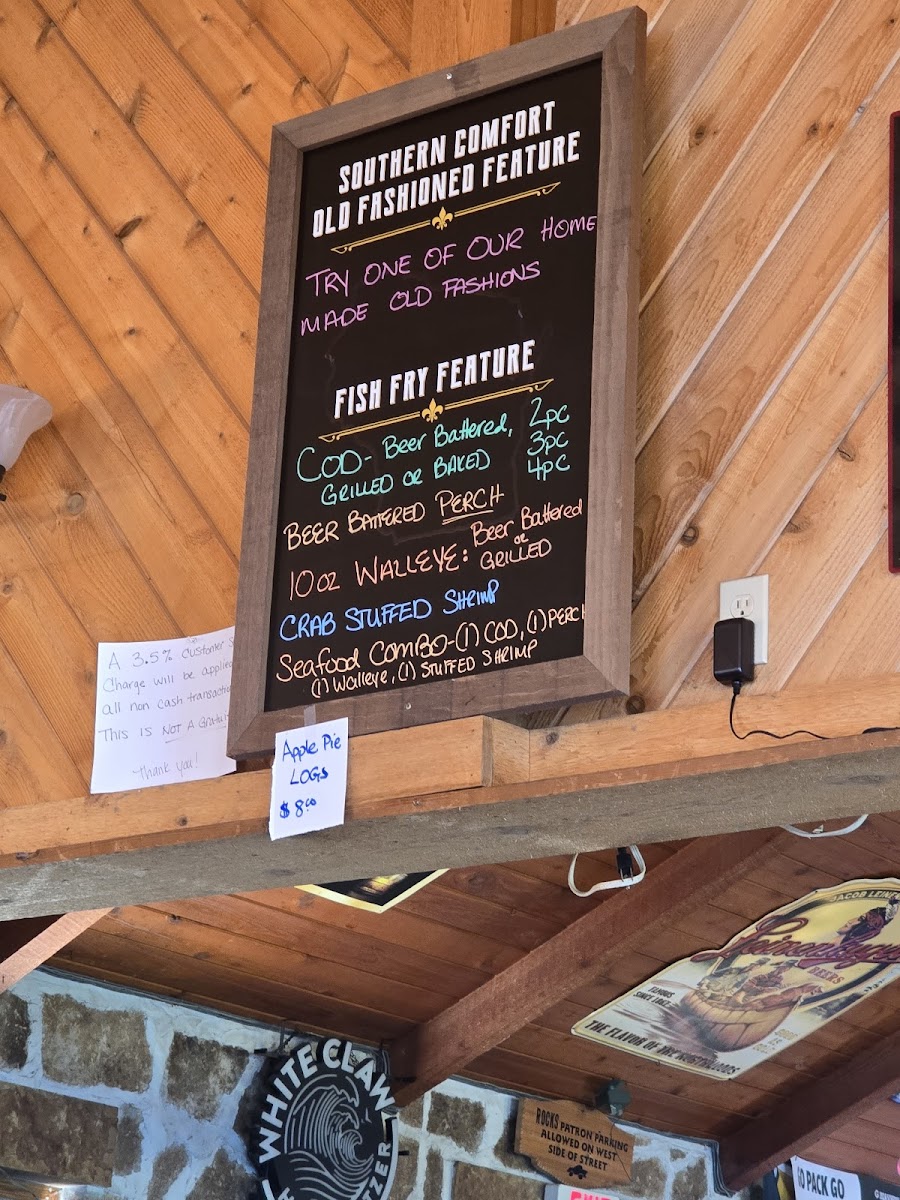 SOUTHERN COMFORT
OLD FASHIONED FEATURE
TRY ONE OF OUR HOME
MADE OLD FASHIONS
FISH FRY FEATURE
COD- Beer Battered, 2pc
GRILLED or BAKED 3pc
4pc
BEER BATTERED PERCH
10oz WALLEYE: Beer Battered
or
GRILLED
CRAB STUFFED SHRIMP
Seafood Combo-(1) COD, (1) PERCH
(1) Walleye, (1) STUFFED SHRIMP
A 3.5% Customer
Charge will be applied
all non cash
THIS IS NOT A
Thank you!
Apple Pie
LOGS
$8.00
JACOB LEINE
Leinenkugel
BEERS
FAMOUS
SINCE 1867
THE FLAVOR OF THE NORTHWOODS
WHITE CLAW
ROCKS PATRON PARKING
ALLOWED ON WEST
SIDE OF STREET
GO PACK GO